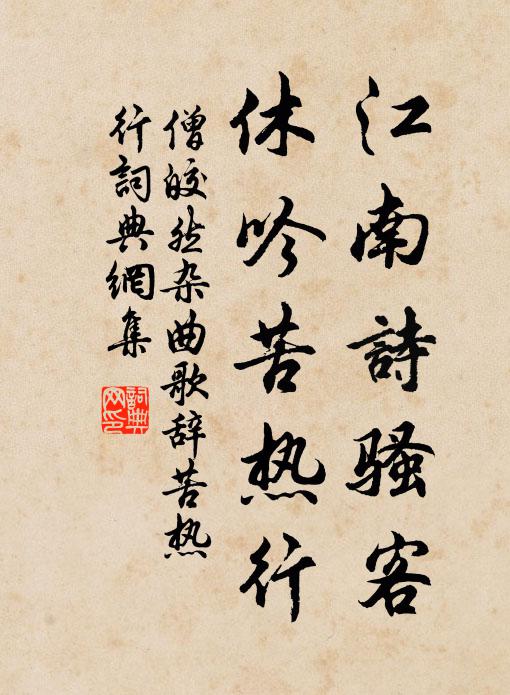 江南詩骚客
休吟苦热行
僧皎然杂曲歌辞苦热
行詞典網集
詞典网印